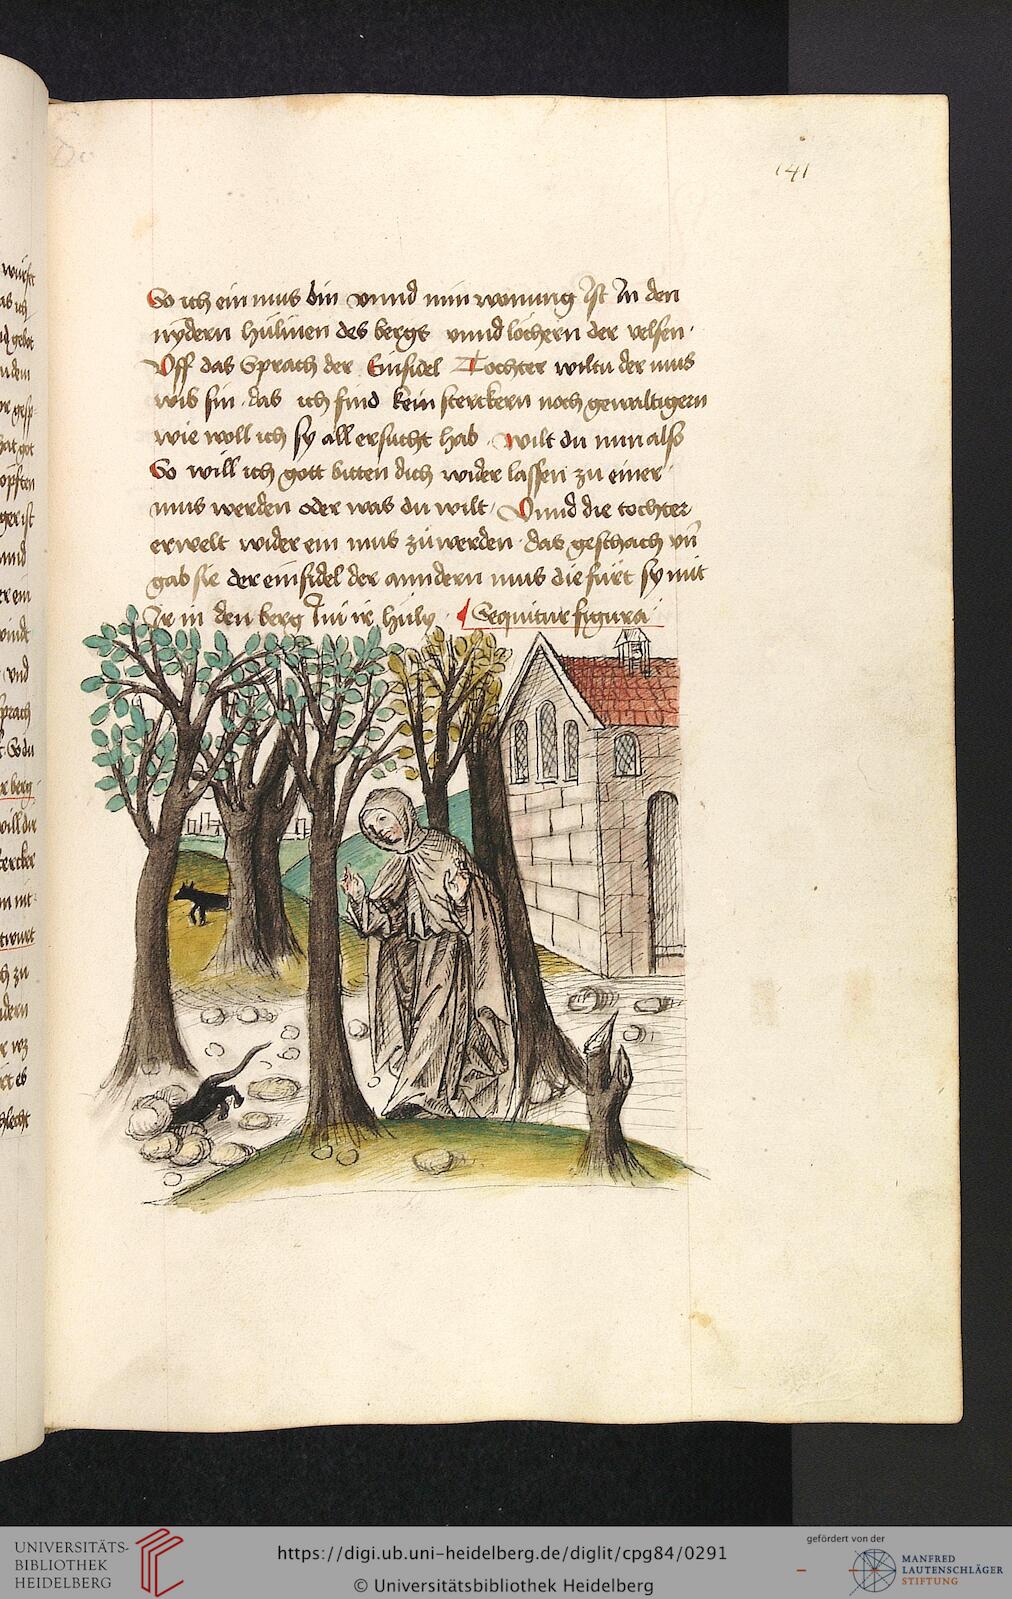 141
So ich ein mus bin vnnd min wonung Ist In den
nydern húlinen des bergs vnnd löchern der velsen ·
Vff das Sprach der Einsidel Tochter wiltu der mus
wib sin · das ich find kein sterckern noch gewaltigern
wie woll ich sy all ersucht hab · wilt du nun also
So will ich gott bitten dich wider lassen zu einer
mus werden oder was du wilt · Vnnd die tochter
erwelt wider ein mus zúwerden · das geschach vn̄
gab sie der einsidel der anndern mus die fúrt sy mit
Ir in den berg Inn ir húly · Sequitur figura
UNIVERSITÄTS-
BIBLIOTHEK
HEIDELBERG
https://digi.ub.uni-heidelberg.de/diglit/cpg84/0291
© Universitätsbibliothek Heidelberg
gefördert von der
MANFRED
LAUTENSCHLÄGER
STIFTUNG